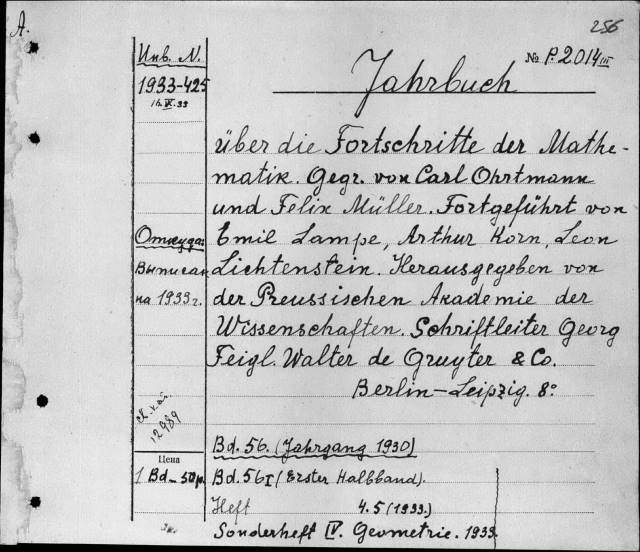 A.
256
Инв. N.
№ P.2014 III
1933-425
16.IX.33
Jahrbuch
über die Fortschritte der Mathe-
matik. Gegr. von Carl Ohrtmann
und Felix Müller. Fortgeführt von
Откуда
Emil Lampe, Arthur Korn, Leon
Выписан
Lichtenstein. Herausgegeben von
на 1933 г.
der Preussischen Akademie der
Wissenschaften. Schriftleiter Georg
Feigl. Walter de Gruyter & Co.
Berlin-Leipzig. 8°
12989
Bd. 56. (Jahrgang 1930)
Цена
1 Bd_50р.
Bd. 56I (Erster Halbband).
Heft 4.5 (1933.)
Sonderheft IV. Geometrie. 1933